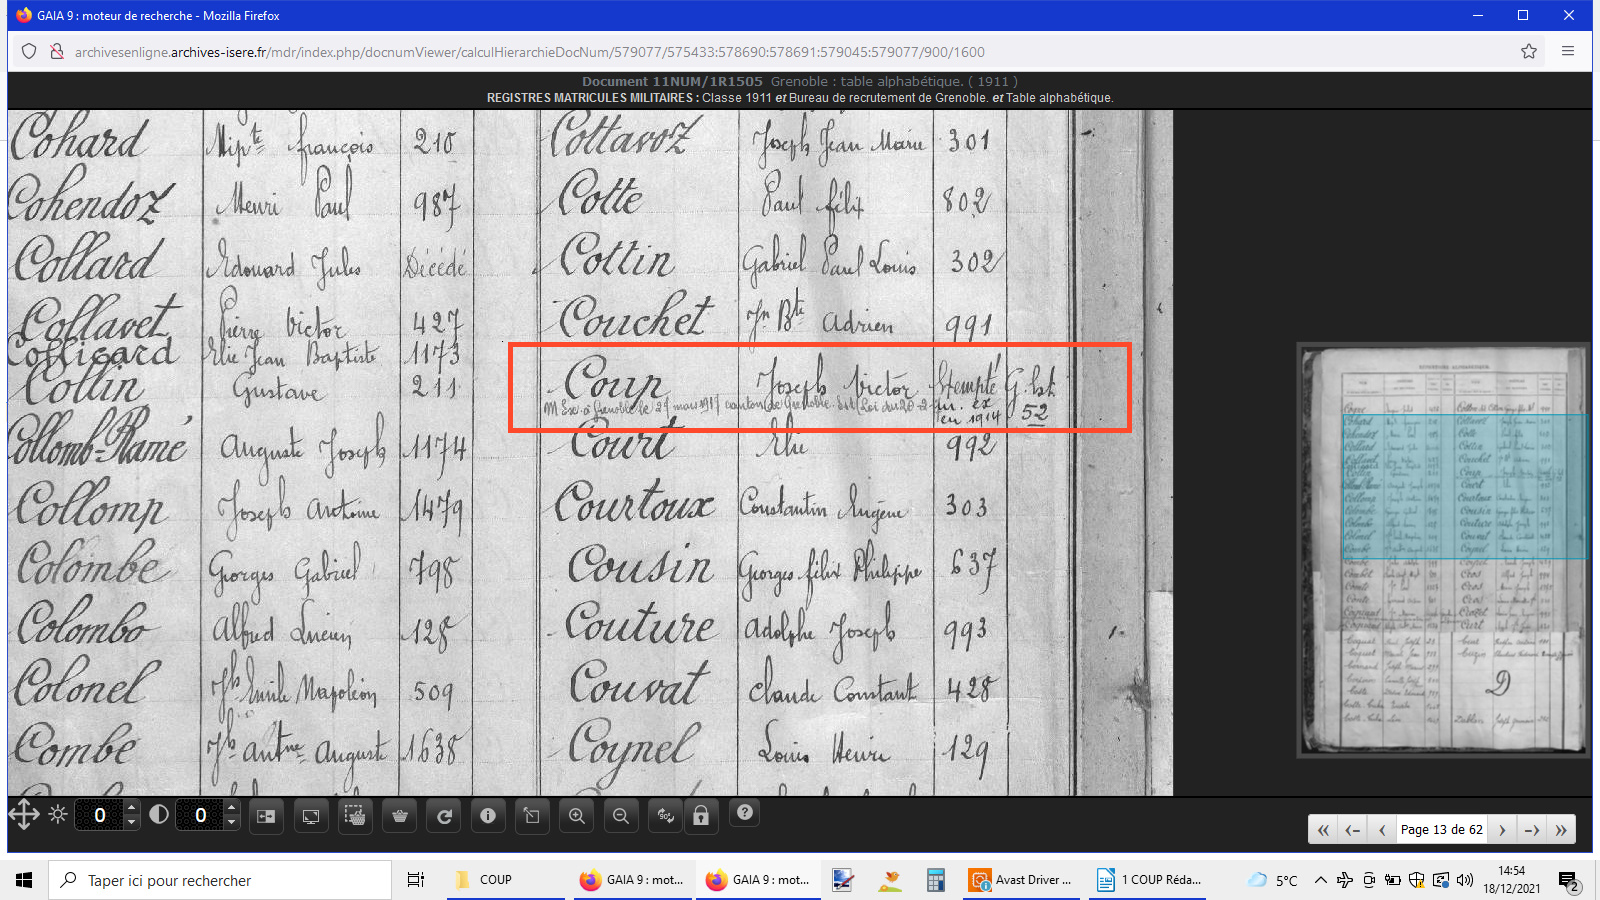 GAIA 9 : moteur de recherche - Mozilla Firefox
archivesenligne.archives-isere.fr/mdr/index.php/docnumViewer/calculHierarchieDocNum/579077/575433:578690:578691:579045:579077/900/1600
Document 11NUM/1R1505 Grenoble : table alphabétique. ( 1911 )
REGISTRES MATRICULES MILITAIRES : Classe 1911 et Bureau de recrutement de Grenoble. et Table alphabétique.
Cohard Hipte françois 210
Cohendoz Henri Paul 987
Collard Edouard Jules Décédé
Collavet Pierre Victor 427
Collicard Elie Jean Baptiste 1173
Collin Gustave 211
Collomb-Ramé Auguste Joseph 1174
Collomp Joseph Antoine 1479
Colombe Georges Gabriel 798
Colombo Alfred Lucien 128
Colonel Jh Emile Napoléon 509
Combe Jh antne Auguste 1638
Cottavoz Joseph Jean Marie 301
Cotte Paul félix 802
Cottin Gabriel Paul Louis 302
Couchet Jn Bte Adrien 991
Coup Joseph Victor Exempté G. bt
à Grenoble le 27 mars 1917 canton de Grenoble. Loi du 20
en 1914 52
Court Elie 992
Courtoux Constantin Eugène 303
Cousin Georges félix Philippe 637
Couture Adolphe Joseph 993
Couvat Claude Constant 428
Coynel Louis Henri 129
D
0 0
90°
Page 13 de 62
Taper ici pour rechercher
COUP
GAIA 9 : mot...
GAIA 9 : mot...
Avast Driver ...
1 COUP Réda...
5°C
14:54
18/12/2021
2